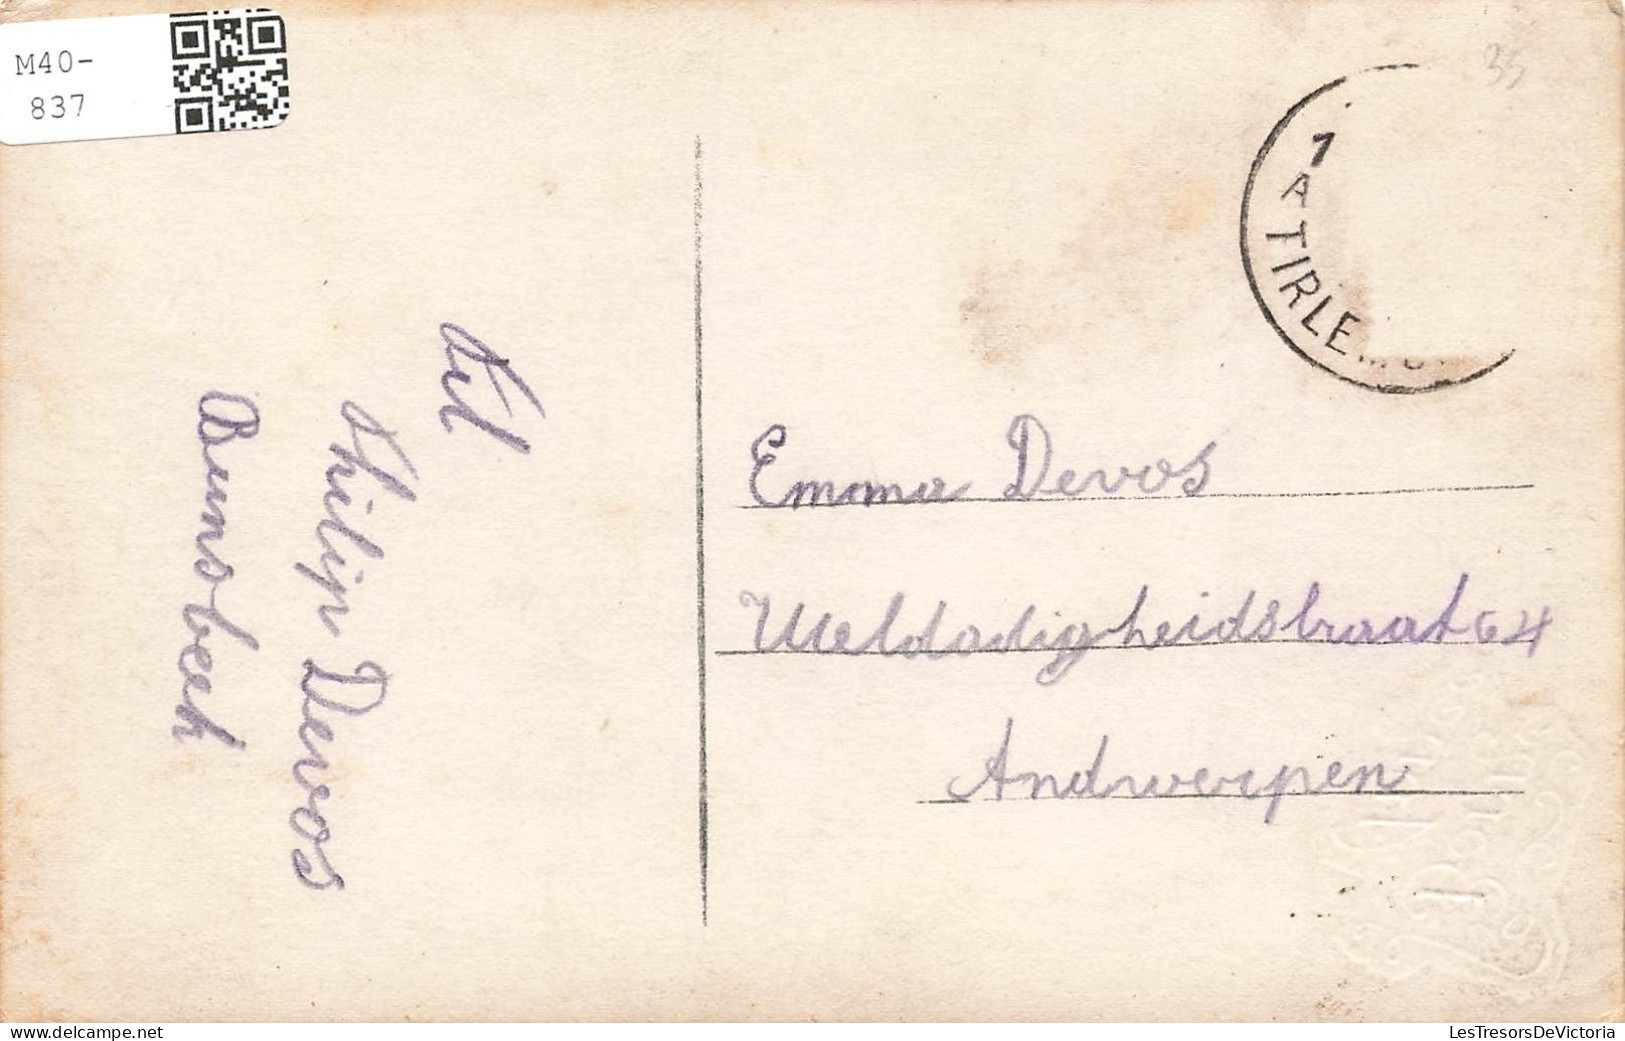 M40-
837
35
1
A
TIRLE
Phillip Devos
Bunsbeek
Emma Devos
Weldadigheidstraat 64
Andwerpen
LesTresorsDeVictoria